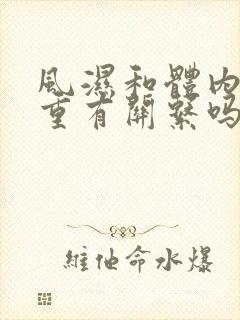 風濕和體內
重有關繫嗎
維他命水爆